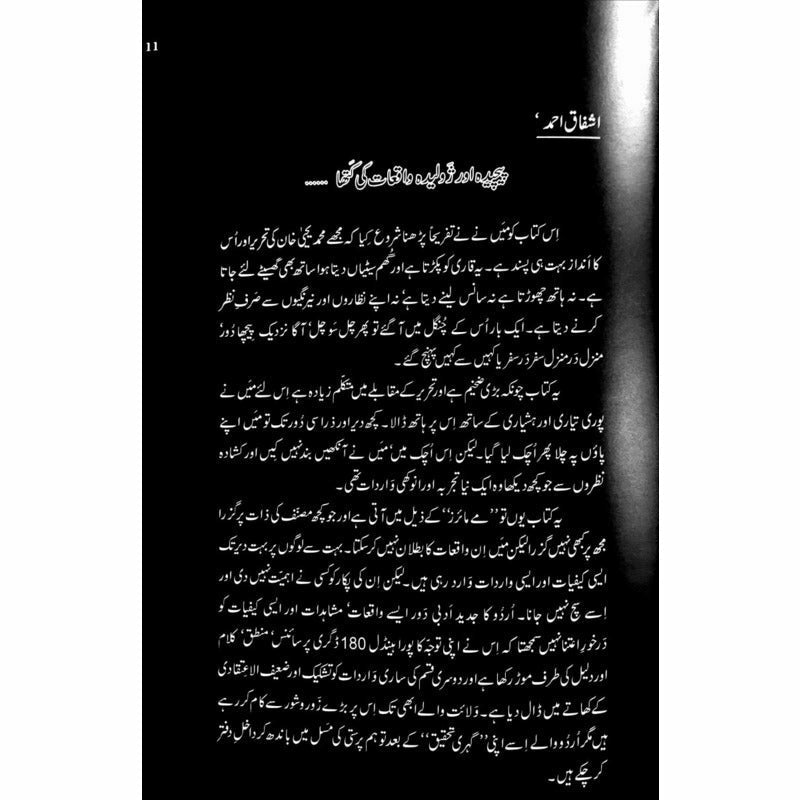 11
اشفاق احمد ‘
پیچیدہ اور ژولیدہ واقعات کی کتھا ......
اِس کتاب کو مَیں نے نے تفریحاً پڑھنا شروع کِیا کہ مجھے محمد یحییٰ خان کی تحریر اور اُس
کا اَنداز بہت ہی پسند ہے۔ یہ قاری کو پکڑتا ہے اور گُھم سیٹیاں دیتا ہوا ساتھ بھی گھسیٹے لئے جاتا
ہے۔ نہ ہاتھ چھوڑتا ہے نہ سانس لینے دیتا ہے‘ نہ اپنے نظاروں اور نیرنگیوں سے صَرفِ نظر
کرنے دیتا ہے۔ ایک بار اُس کے چُنگل میں آ گئے تو پھر چل سَو چل‘ آگا نزدیک پیچھا دُور‘
منزل دَر منزل سفر دَر سفر یا کہیں سے کہیں پہنچ گئے۔
یہ کتاب چونکہ بڑی ضخیم ہے اور تحریر کے مقابلے میں متکلّم زیادہ ہے اِس لئے مَیں نے
پوری تیاری اور ہشیاری کے ساتھ اِس پر ہاتھ ڈالا۔ کچھ دیر اور ذرا سی دُور تک تو مَیں اپنے
پاؤں پہ چلا پھر اُچک لیا گیا۔ لیکن اِس اُچک میں‘ مَیں نے آنکھیں بند نہیں کیں اور کشادہ
نظروں سے جو کچھ دیکھا وہ ایک نیا تجربہ اور انوکھی وَاردات تھی۔
یہ کتاب یوں تو ’’مے مائرز‘‘ کے ذیل میں آتی ہے اور جو کچھ مصنّف کی ذات پر گزرا
مجھ پر کبھی نہیں گزرا لیکن مَیں اِن واقعات کا بطلان نہیں کر سکتا۔ بہت سے لوگوں پر بہت دیر تک
ایسی کیفیات اور ایسی واردات وَارد رہی ہیں۔ لیکن اِن کی پکار کو کسی نے اہمیّت نہیں دی اور
اِسے سچ نہیں جانا۔ اُردُو کا جدید اَدبی دَور ایسے واقعات‘ مشاہدات اور ایسی کیفیات کو
دَرخورِ اعتنا نہیں سمجھتا کہ اِس نے اپنی توجّہ کا پورا ہینڈل 180 ڈگری پر سائنس‘ منطق‘ کلام
اور دلیل کی طرف موڑ رکھا ہے اور دوسری قسم کی ساری وَاردات کو تشکیک اور ضعیف الاعتقادی
کے کھاتے میں ڈال دیا ہے۔ وَلائت والے ابھی تک اِس پر بڑے زَور و شور سے کام کر رہے
ہیں مگر اُردُو والے اِسے اپنی ’’گہری تحقیق‘‘ کے بعد توہم پرستی کی مَسل میں باندھ کر داخلِ دفتر
کر چکے ہیں۔